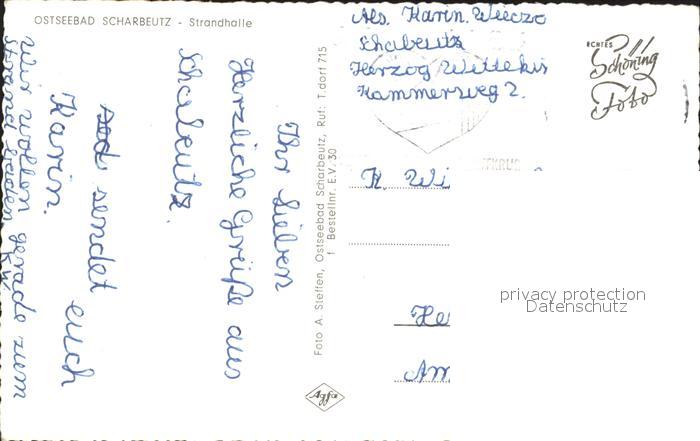 OSTSEEBAD SCHARBEUTZ - Strandhalle
Ihr Lieben
Herzliche Grüße aus
Schabeutz.
sendet euch
Karin.
Wir wollen gerade zum
Strand baden
Foto A. Steffen, Ostseebad Scharbeutz, Ruf: T.dorf 715
f Bestellnr. E.V. 30
Agfa
Abs. Karin. Wieczo
Schabeutz
Herzog Wittekin
Kammerweg 2.
ECHTES
Schöning
Foto
K. Wi
He
Am
privacy protection
Datenschutz